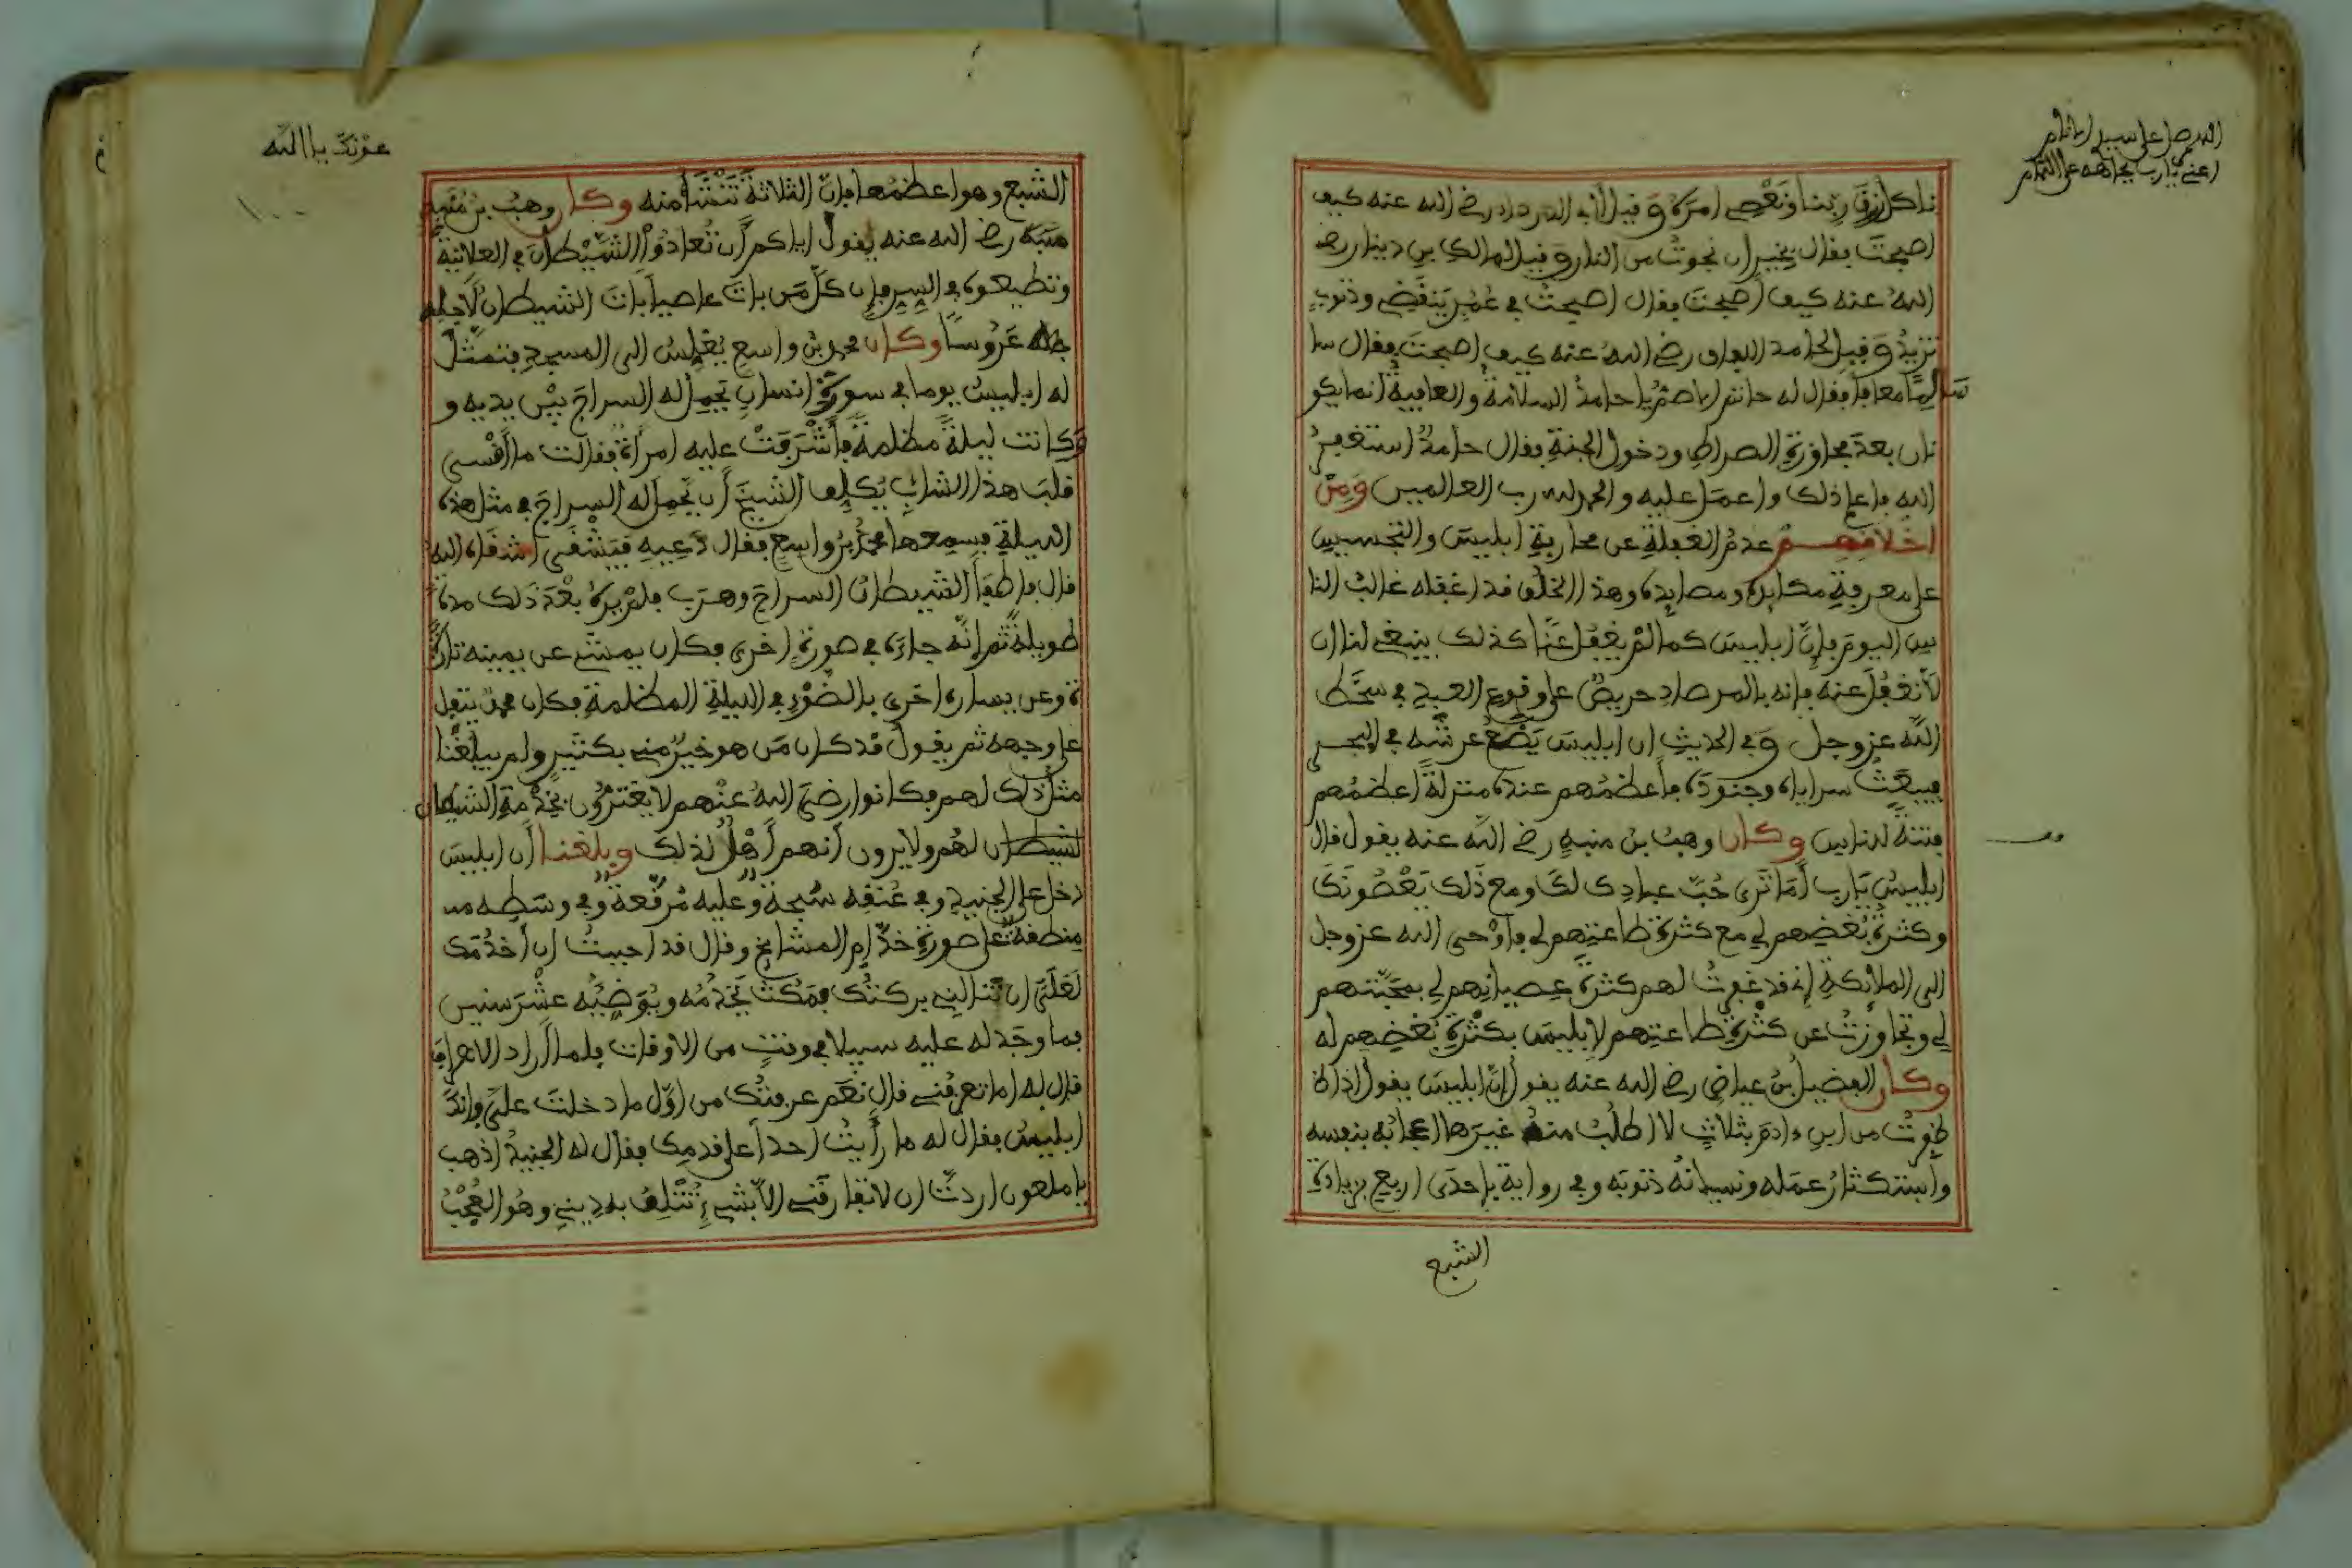 اللهم صل على سيد الانام
اعني يارب بجاهه على التمام
ناكل رزق ربنا ونعصي امره وقيل لأبي الدرداء رضي الله عنه كيف
اصبحت فقال بخير ان نجوت من النار وقيل لمالك بن دينار رضي
الله عنه كيف اصبحت فقال اصبحت في عُمُر ينقص وذنوب
تزيد وقيل لحامد اللفاف رضي الله عنه كيف اصبحت فقال سا
سالمًا معافا فقال له حاتم الاصم يا حامد السلامة والعافية انما يكو
نان بعد مجاوزة الصراط ودخول الجنة فقال حامد استغفر
الله فاعلم ذلك واعمل عليه والحمد لله رب العالمين ومن
اخلاقهم عدم الغفلة عن محاربة ابليس والتجسيس
على معرفة مكايده ومصايده وهذا الخلق قد اغفله غالب النا
س اليوم فإن ابليس كما لم يغفل عنا كذلك ينبغي لنا ان
لا نغفل عنه فإنه بالمرصاد حريص على وقوع العبد في سخط
الله عز وجل وفي الحديث ان ابليس يضع عرشه في البحر
فيبعث سراياه وجنوده فأعظمهم عنده منزلة اعظمهم
فتنة للناس وكان وهب بن منبه رضي الله عنه يقول قال
ابليس يارب أما ترى حب عبادك لك ومع ذلك يعصونك
وكثرة بغضهم لي مع كثرة طاعتهم لي فأوحى الله عز وجل
الى الملائكة إني قد غفرت لهم كثرة عصيانهم لي بمحبتهم
لي وتجاوزت عن كثرة طاعتهم لإبليس بكثرة بغضهم له
وكان الفضيل بن عياض رضي الله عنه يقول إن ابليس يقول اذا
ظفرت من ابن ءادم بثلاث لا اطلب منه غيرها اعجابه بنفسه
واستكثار عمله ونسيانه ذنوبه وفي رواية باحدى اربع بزيادة
الشبع
عونك يا الله
الشبع وهو اعظمها فإن الثلاثة تنشأ منه وكان وهب بن منبه
منبه رضي الله عنه يقول اياكم أن تعادوا الشيطان في العلانية
وتطيعوه في السر فإن كل من بات عاصيا بات الشيطان لأجله
عروسا وكان محمد بن واسع يغلس الى المسجد فتمثل
له ابليس يوما في سورة انسان يحمل له السراج بين يديه و
وكانت ليلة مظلمة فأشرفت عليه امرأة فقالت ما أقسى
قلب هذا الشاب يكلف الشيخ أن يحمل له السراج في مثل هذه
الليلة فسمعها محمد بن واسع فقال دعيه فيشقى اشقاه الله
قال فاطفأ الشيطان السراج وهرب فلم يره بعد ذلك مدة
طويلة ثم إنه جاءه في صورة اخرى فكان يمشي عن يمينه تارة
ة وعن يساره اخرى بالضوء في الليلة المظلمة فكان محمد يتفل
على وجهه ثم يقول قد كان من هو خير مني بكثير ولم يبلغنا
مثل ذلك لهم فكانوا رضي الله عنهم لا يغترون بخدمة الشيطان
لهم ولا يرون أنهم أهل لذلك وبلغنا أن ابليس
دخل على الجنيد وفي عنقه سبحة وعليه مرقعة وفي وسطه
منطقة على صورة خدام المشايخ وقال قد احببت ان أخدمك
لعلني ان تنالني بركتك فمكث يخدمه ويوضيه عشر سنين
فما وجد له عليه سبيلا في وقت من الاوقات فلما أراد الانصراف
قال له اما تعرفني قال نعم عرفتك من اول ما دخلت علي وانك
ابليس فقال له ما رأيت احدا على قدمك فقال له الجنيد اذهب
يا ملعون اردت ان لا تفارقني الا بشيء تتلف به ديني وهو العجب